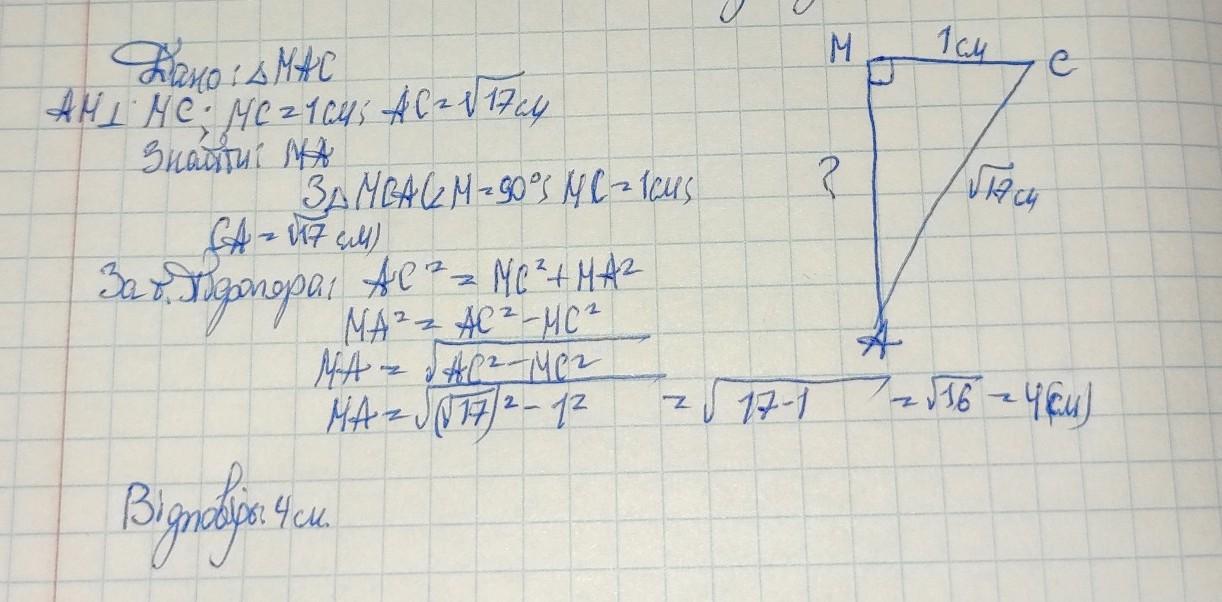 Дано: △MAC
AM⊥MC; MC=1см; AC=√17см
Знайти: MA
З △MCA(∠M=90°; MC=1см;
CA=√17 см)
За т. Піфагора: AC²=MC²+MA²
MA²=AC²-MC²
MA=√AC²-MC²
MA=√(√17)²-1² =√17-1 =√16=4(см)
Відповідь: 4 см.
M 1см C
?
√17см
A